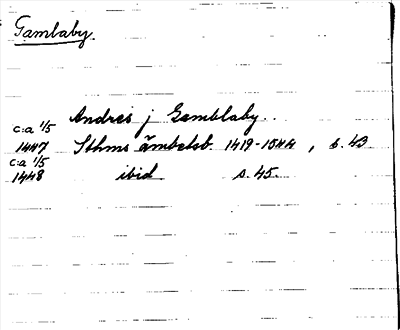 Gamlaby.
Andres j Gamblaby.
c:a 1/5
1447 Sthms ämbetsb. 1419-1544, s. 43
c:a 1/5
1448 ibid s. 45.